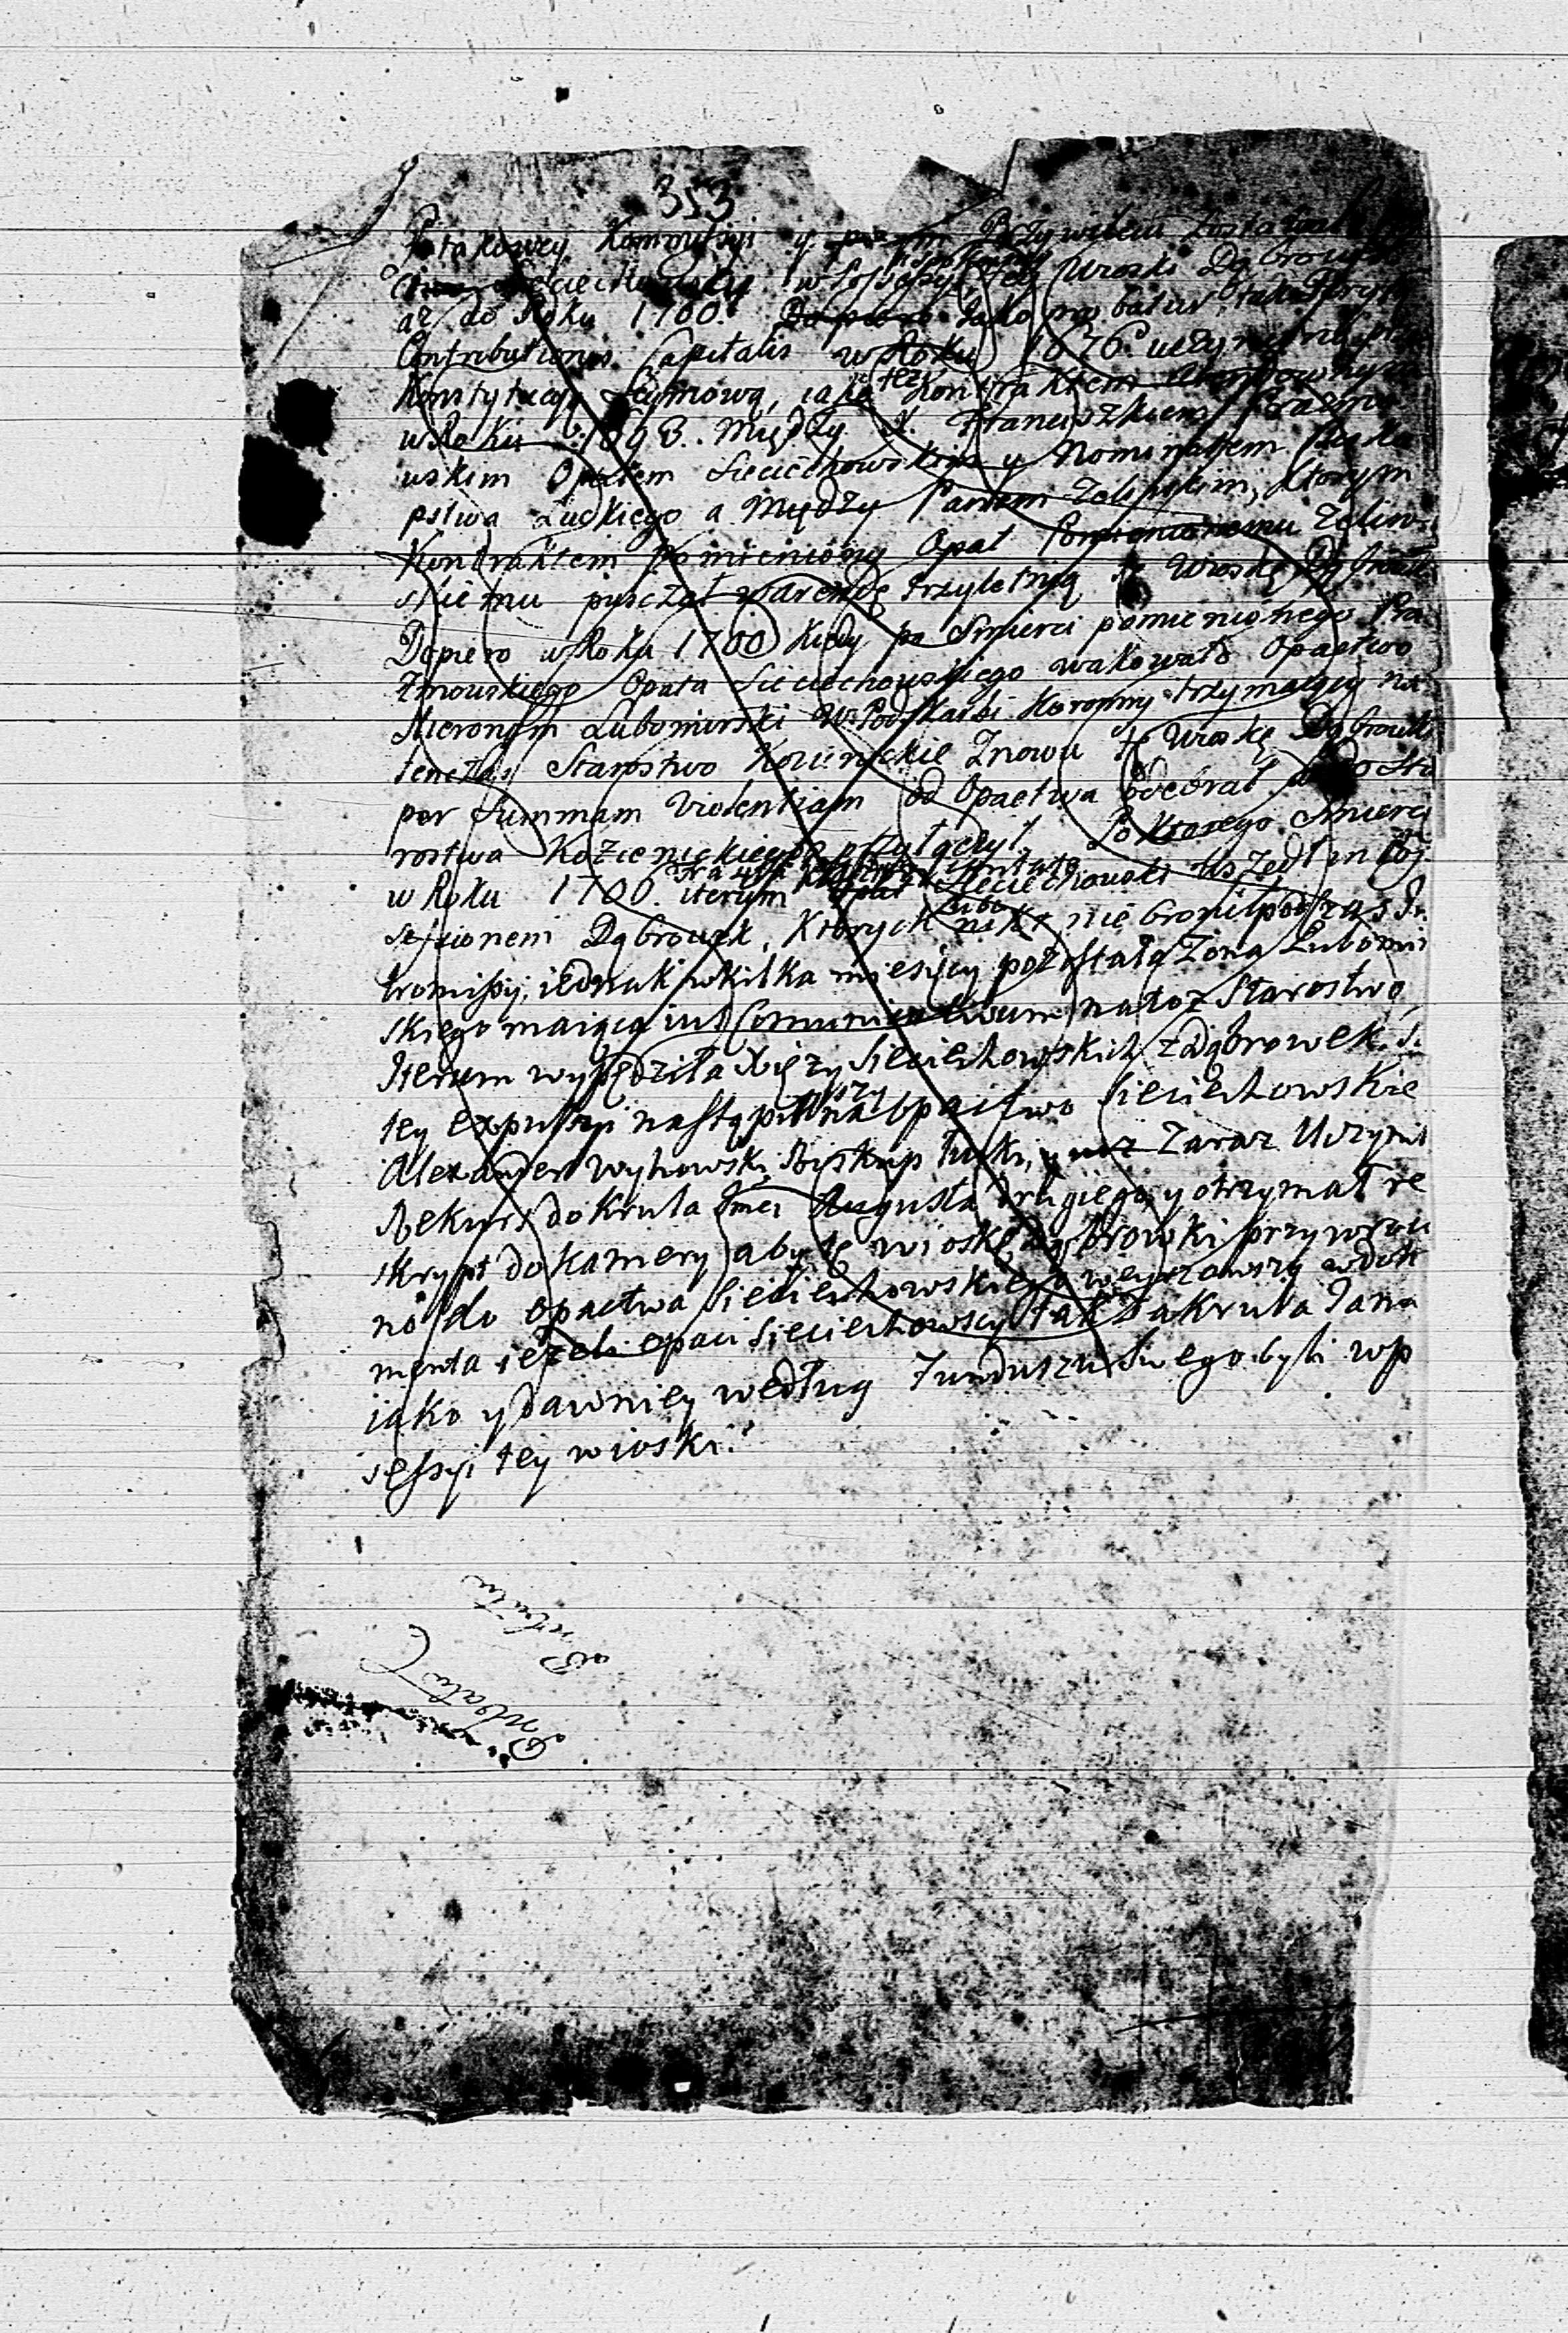 353
Po takowey Kommissyi y Przywileiu zostawali
Sieciechowscy w Possessyi tey Wioski Dąbrowki
aż do Roku 1700. Jako probatur tak
Contributiones Capitalis w Roku 1676. uczynioną przez
Konstytucyą Seymową, iako też Kontraktem Arendownym
w Roku 1693. Między X. Franciszkiem Prazmo
wskim Opatem Sieciechowskim y Nominatem Bisku
pstwa Łuckiego a Między Panem Zelinskim, ktorym
Kontraktem pomieniony Opat Pomienionemu Zelin
skiemu pusczał w arendę trzyletnią tę Wioskę Dąbrowk
Dopiero w Roku 1700 kiedy po Smierci pomienionego Pra
zmowskiego Opata Sieciechowskiego wakowało Opactwo
Hieronym Lubomirski W. Podskarbi Koronny trzymaiący na
tenczas Starostwo Kozienickie Znowu tę Wioskę Dąbrowk
per Summam Violentiam od Opactwa odebrał y do Sta
rostwa Kozienickiego przyłączył. Po ktorego Smierci
w Roku 1700. iterum Opat Sieciechowski Wszedł in Pos
sessionem Dąbrowek, Ktorych nikt nie bronił podczas In
tromissyi, iednak w kilka miesięcy pozostała Zona Lubomir
skiego maiąca ius Comunicativum na toż Starostwo,
Iterum wypędziła Xięży Sieciechowskich z Dąbrowek. Po
tey expulsyi nastąpiwszy na Opactwo Sieciechowskie
Alexander Wyhowski Biskup Łucki, zaraz Uczynił
Rekurs do Krula Jmci Augusta drugiego, y otrzymał re
skrypt do Kamery aby tę wioskę Dąbrowki przywroco
no do Opactwa Sieciechowskiego weyrzawszy w doku
menta ieżeli opaci Sieciechowscy tak za Krula Jana
iako y dawniey według Funduszu Swego byli w po
sessyi tey wioski.